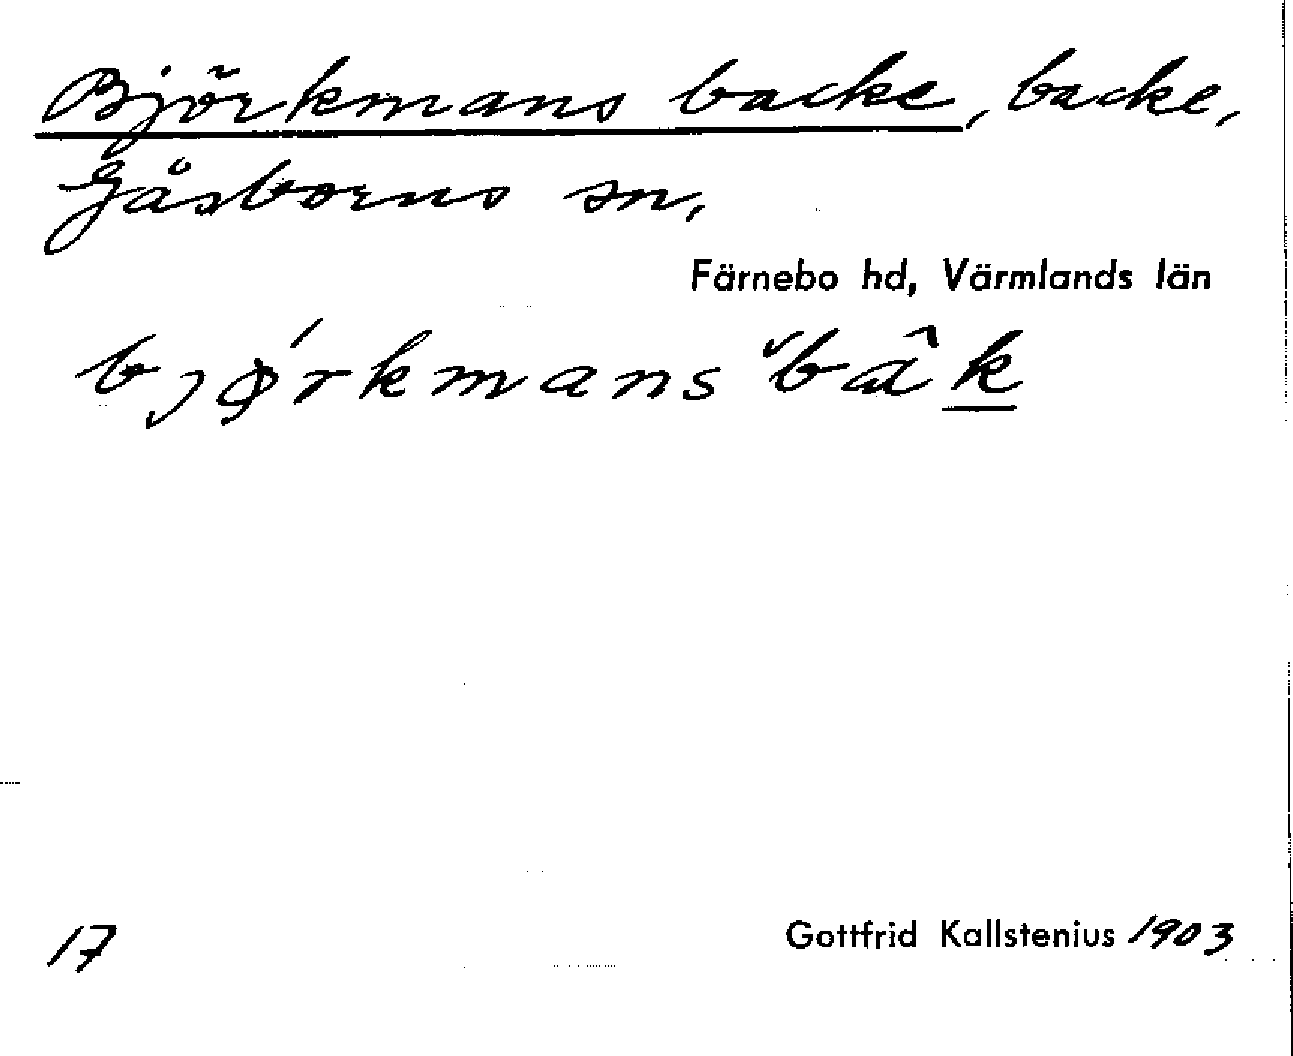 Björkmans backe, backe,
Gåsborns sn,
Färnebo hd, Värmlands län
bjǿrkmans ˇbâk
17
Gottfrid Kallstenius 1903